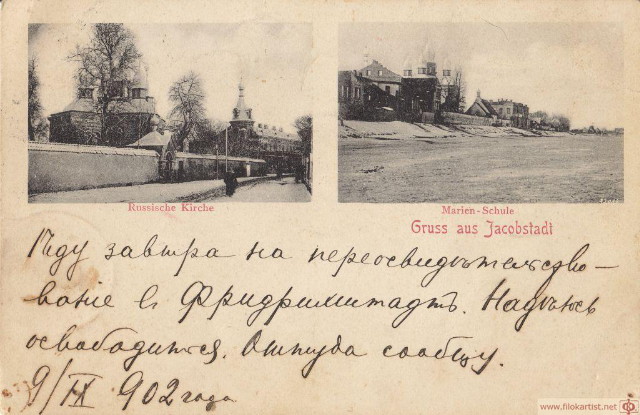 Russische Kirche
Marien-Schule
Gruss aus Jacobstadt
Ѣду завтра на переосвидѣтельство-
ваніе въ Фридрихштадтъ. Надѣюсь
освободится. Оттуда сообщу.
9/IX 902 года
www.filokartist.net